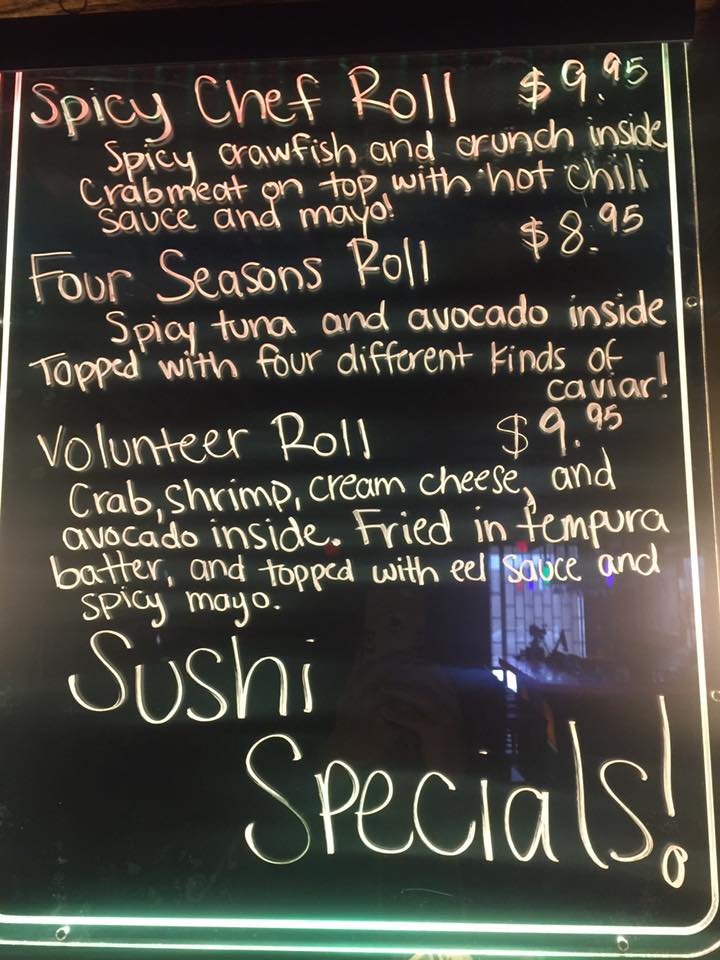 Spicy Chef Roll $9.95
Spicy crawfish and crunch inside
Crabmeat on top with hot chili
sauce and mayo!
Four Seasons Roll $8.95
Spicy tuna and avocado inside
Topped with four different kinds of
caviar!
Volunteer Roll $9.95
Crab, shrimp, cream cheese, and
avocado inside. Fried in tempura
batter, and topped with eel sauce and
spicy mayo.
Sushi
Specials!